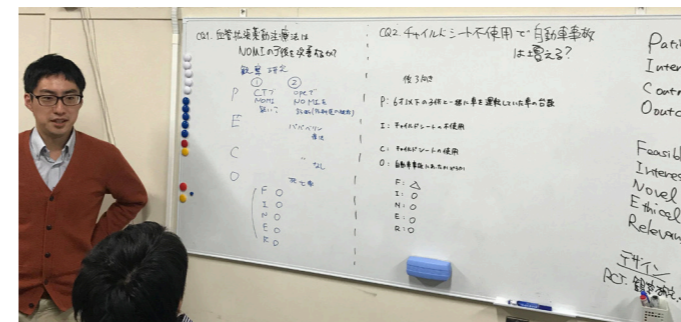 CQ1. 血管拡張薬動注療法は
NOMIの予後を改善するか?
観察研究
① ②
P CTで opeで
NOMI NOMIを
疑い
E パパベリン
療法
C 〃 なし
O 死亡率
F O
I O
N O
E O
R O
CQ2. チャイルドシート不使用で自動車事故
は増える?
後ろ向き
P: 6才以下の子供と一緒に車を運転していた車の台数
I: チャイルドシートの不使用
C: チャイルドシートの使用
O: 自動車事故にあたかどうか
F: △
I: O
N: O
E: O
R: O
Pati
Inter
Contr
Outc
Feasib
Interes
Novel
Ethical
Relevan
デザイン
RCT.